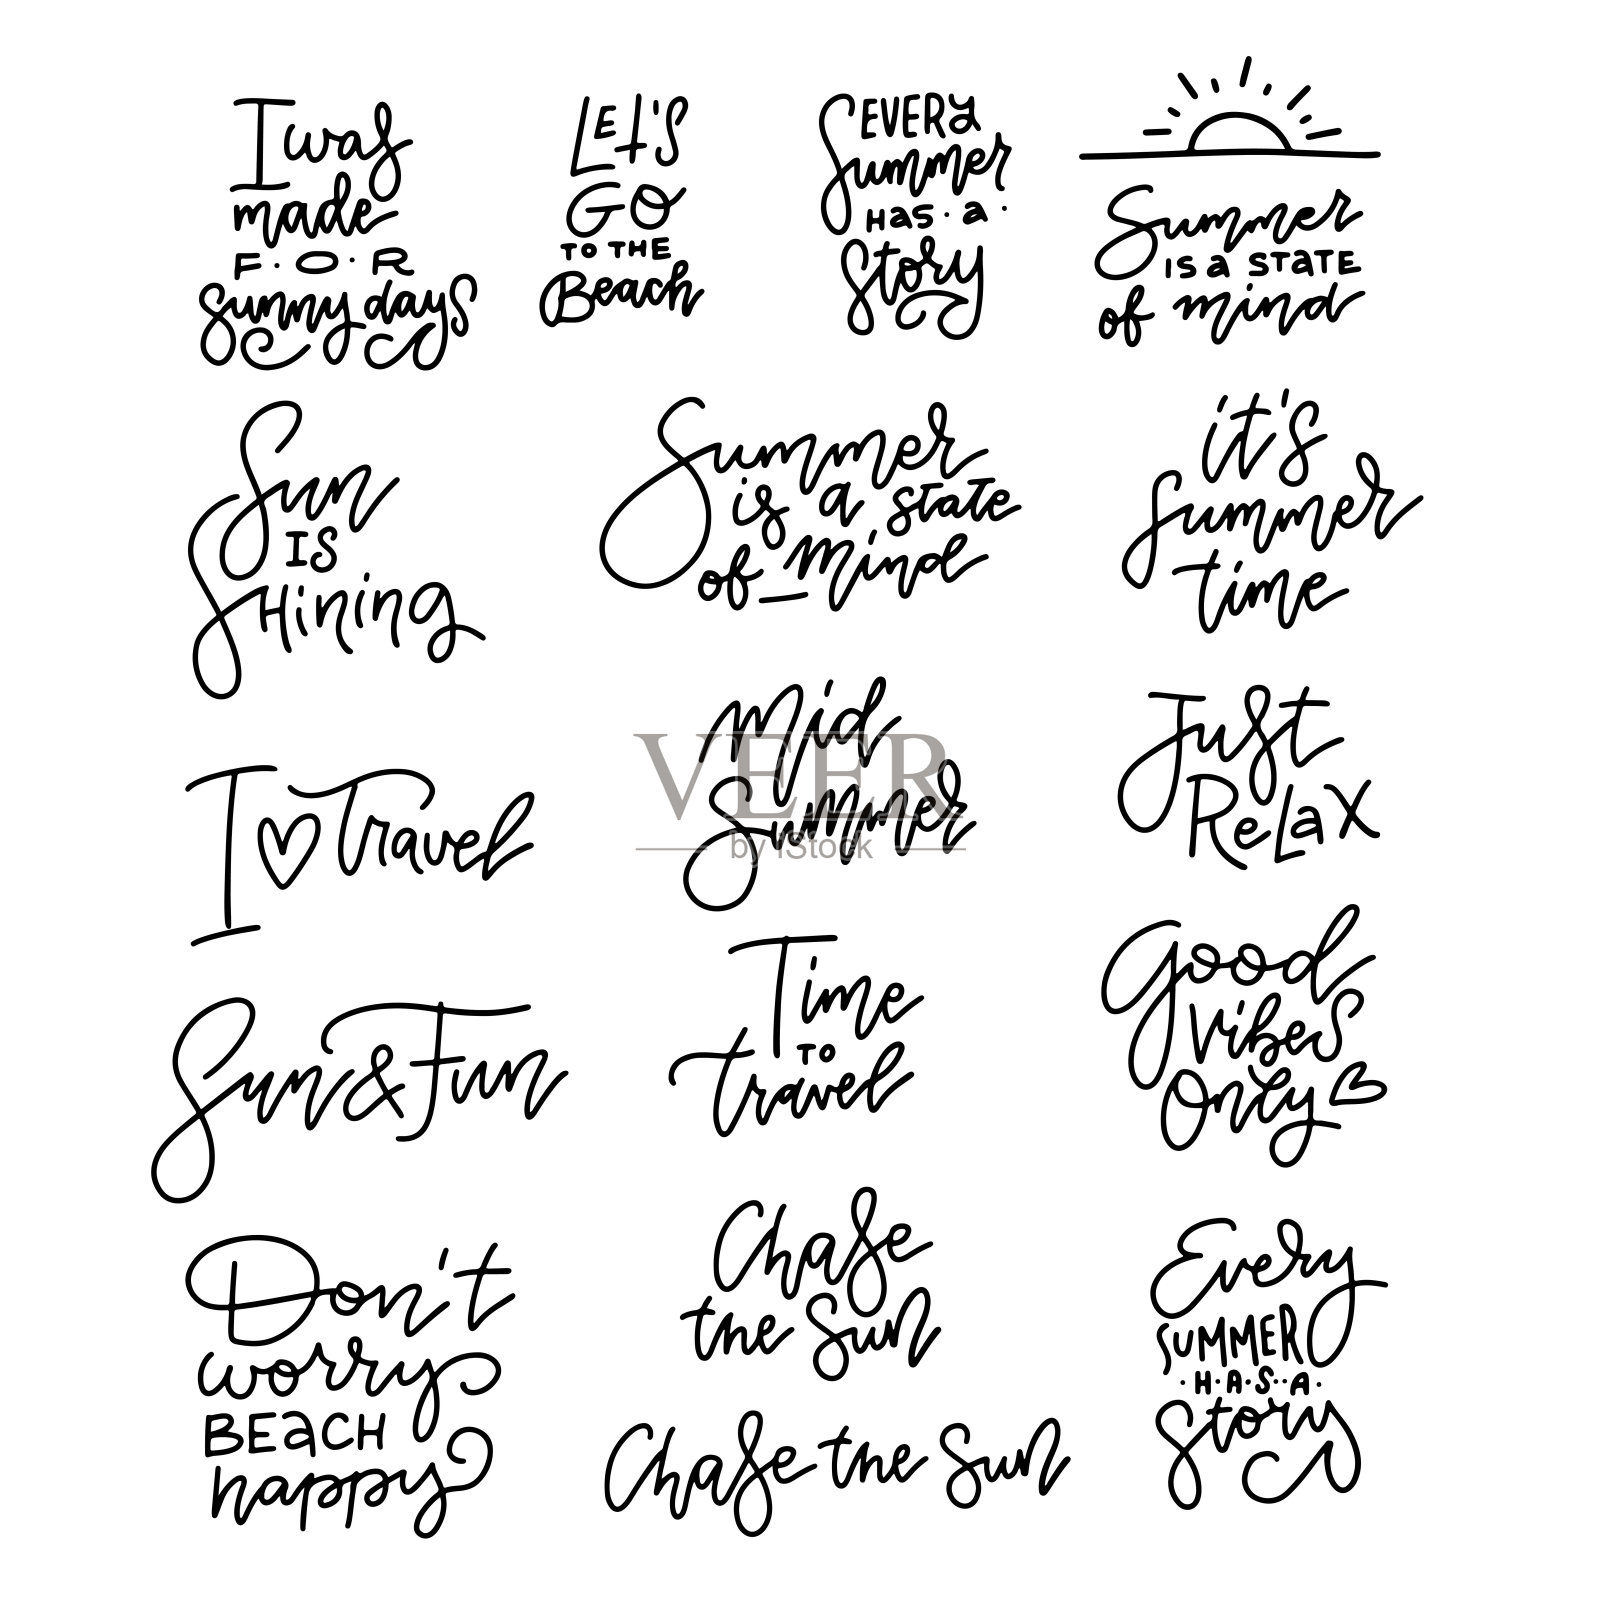 I was
made
F·O·R
sunny days
LET'S
GO
TO THE
Beach
EVERY
Summer
HAS·a·
Story
Summer
IS a STATE
of mind
Sun
IS
SHining
Summer
is a state
of mind
it's
summer
time
I ♡ Travel
Mid
Summer
VEER
by iStock
Just
RELAX
Sun & Fun
Time
TO
travel
Good
vibes
Only ♡
Don't
worry
BEACH
happy
Chase
the Sun
Chase the Sun
Every
SUMMER
·H·A·S·A·
Story